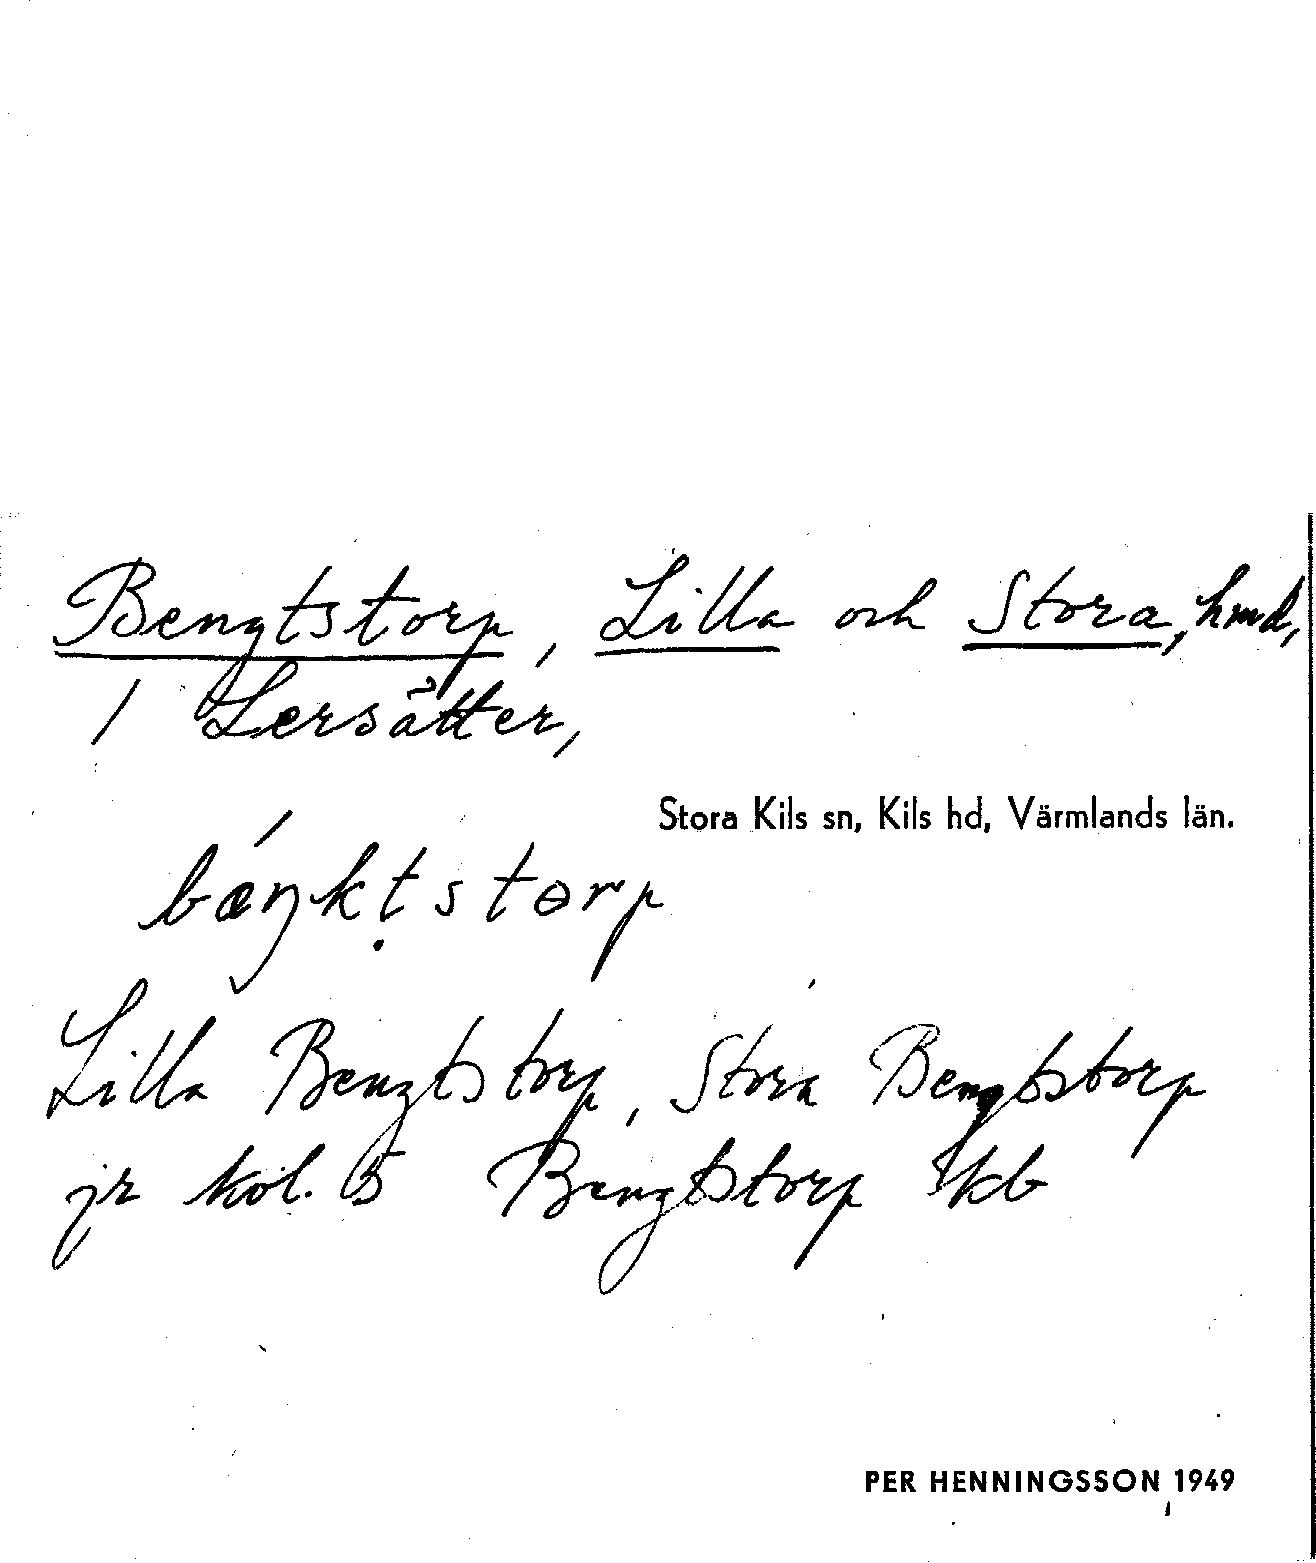 Bengtstorp, Lilla och Stora, hmd,
/ Lersätter,
Stora Kils sn, Kils hd, Värmlands län.
bǽŋkṭstɵrp
Lilla Bengtstorp, Stora Bengtstorp
jr kol. 5 Bengtstorp kb
PER HENNINGSSON 1949